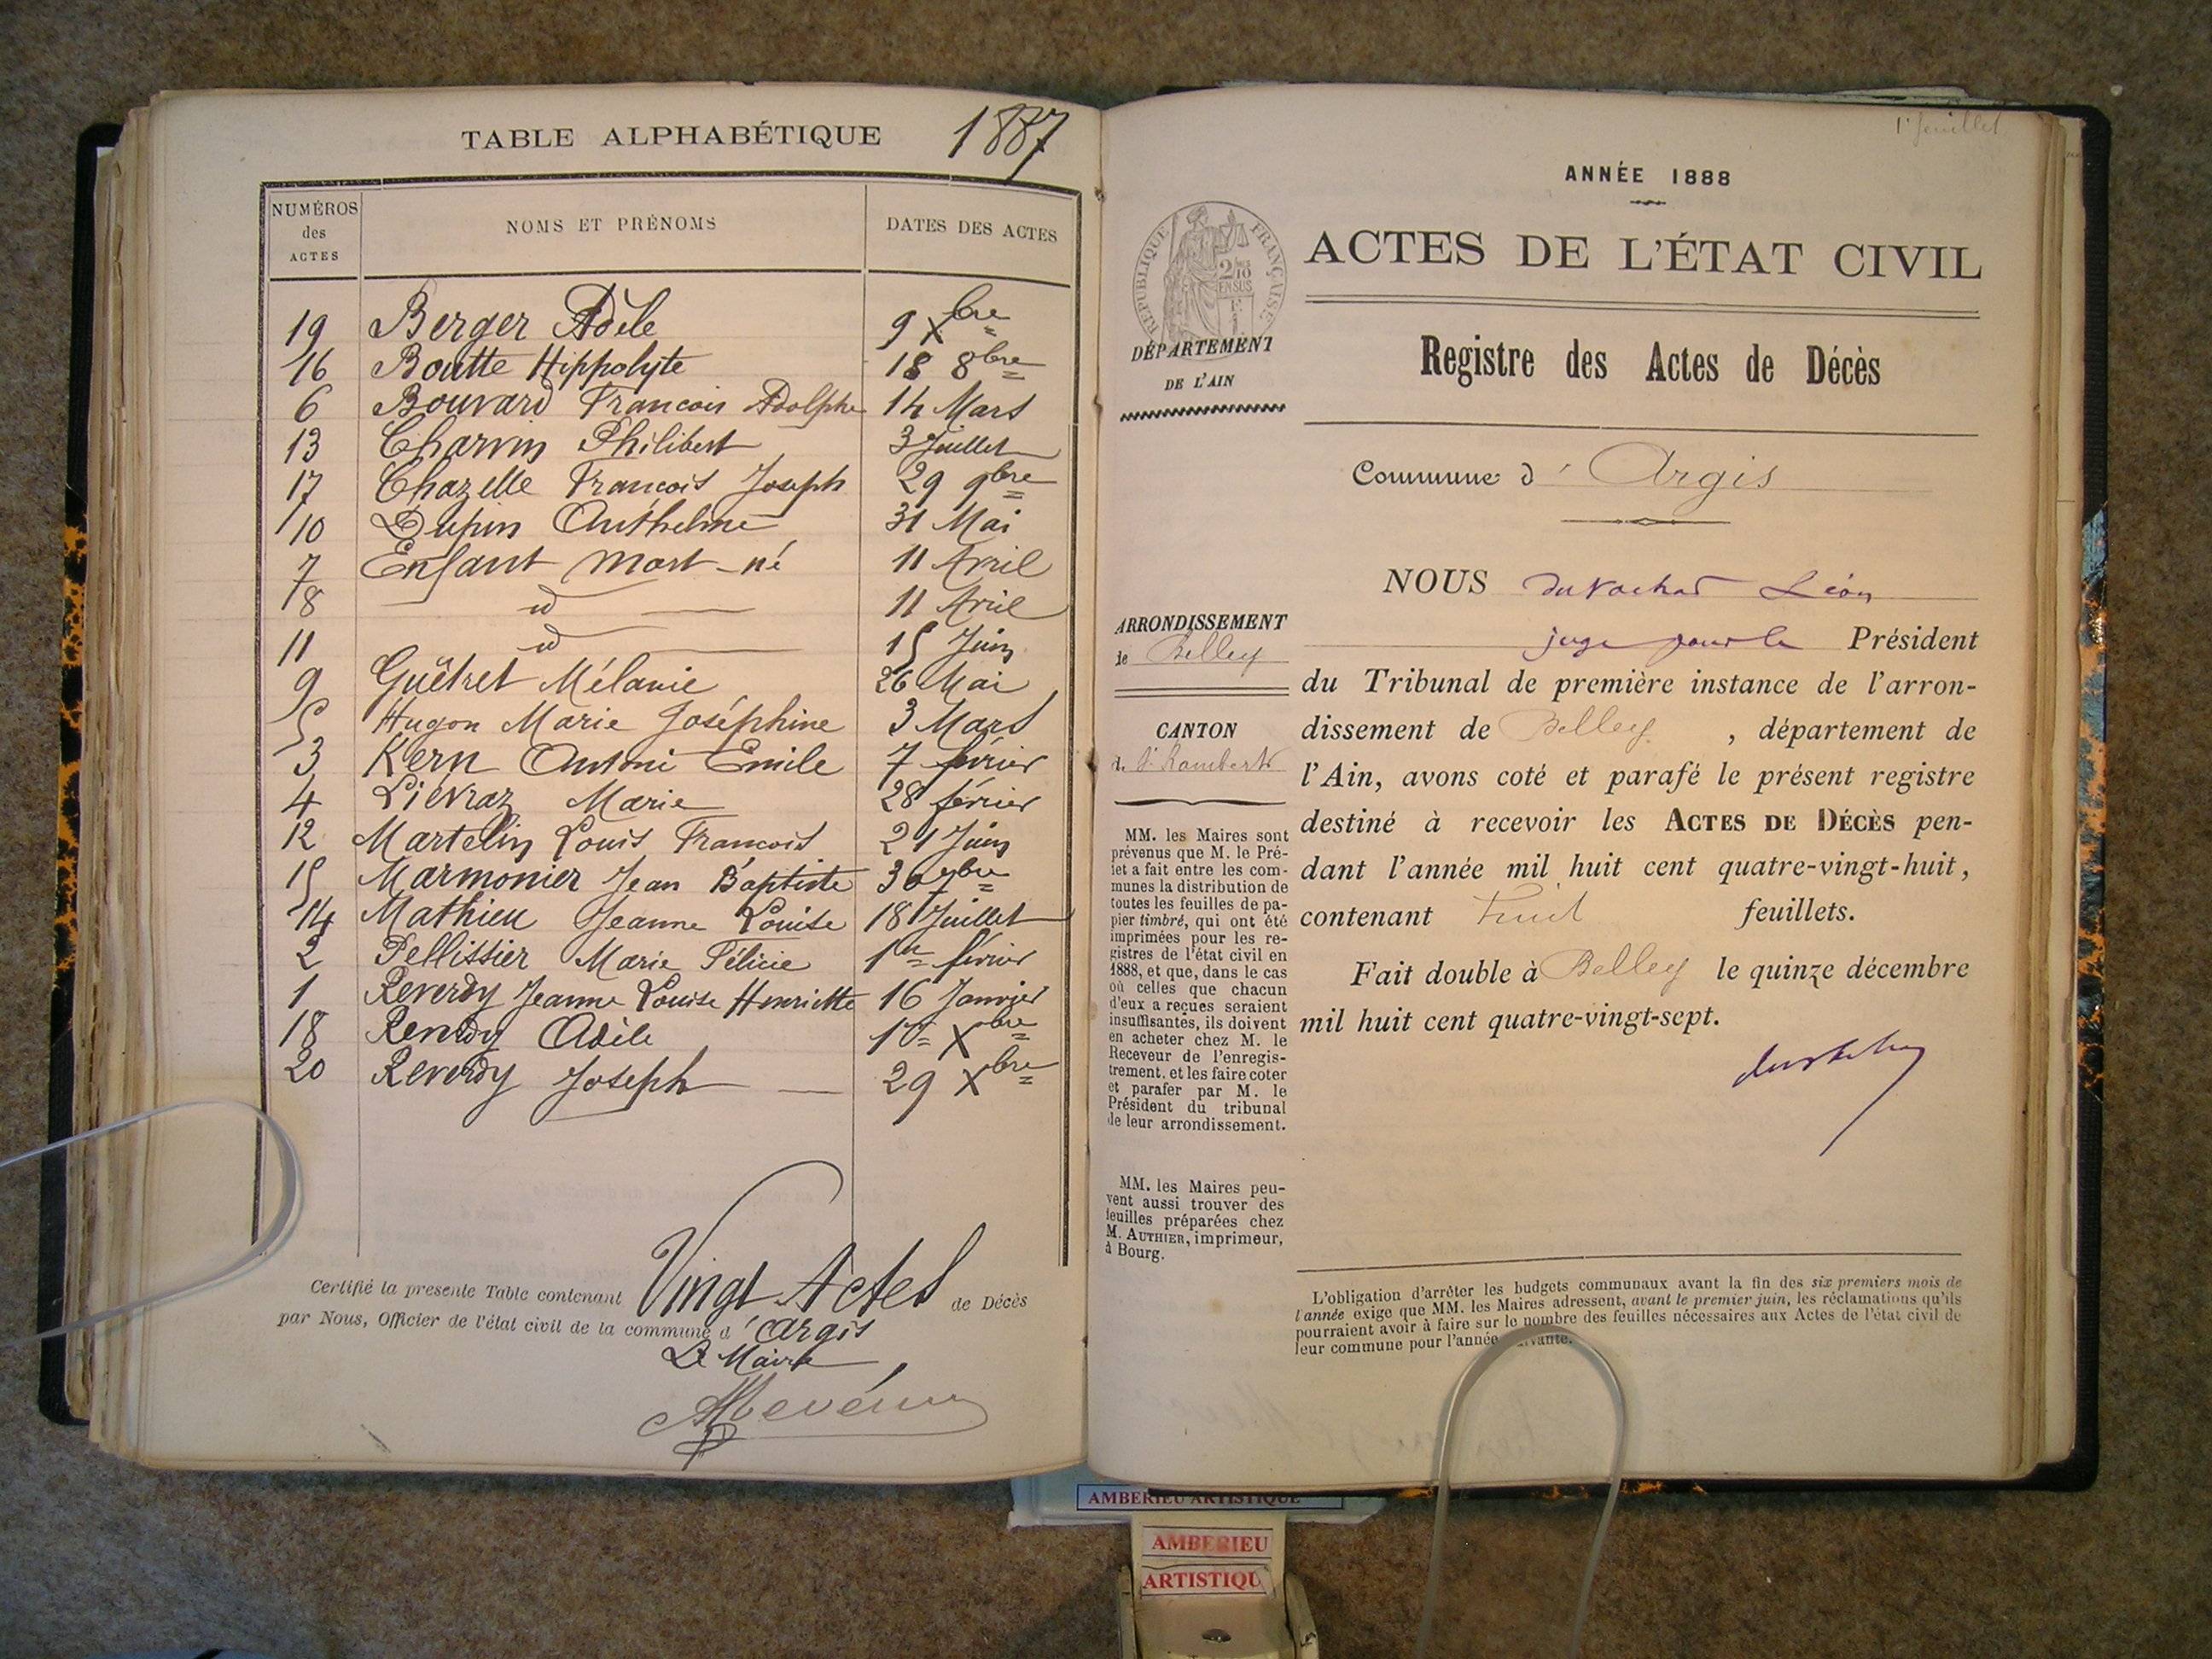 TABLE ALPHABÉTIQUE 1887
NUMÉROS des ACTES NOMS ET PRÉNOMS DATES DES ACTES
19 Berger Adèle 9 Xbre
16 Boutte Hippolyte 18 8bre
6 Bouvard François Adolphe 14 Mars
13 Charvin Philibert 3 Juillet
17 Chazelle François Joseph 29 9bre
10 Dupin Anthelme 31 Mai
7 Enfant mort-né 11 Avril
8 id 11 Avril
11 id 15 Juin
9 Guêtret Mélanie 26 Mai
5 Hugon Marie Joséphine 3 Mars
3 Kern Antoni Emile 7 février
4 Liévraz Marie 28 février
12 Martelin Louis François 21 Juin
15 Marmonier Jean Baptiste 30 7bre
14 Mathieu Jeanne Louise 18 Juillet
2 Pellissier Marie Félicie 1er février
1 Reverdy Jeanne Louise Henriette 16 Janvier
18 Reverdy Adèle 1er Xbre
20 Reverdy Joseph 29 Xbre
Certifié la présente Table contenant Vingt Actes de Décès
par Nous, Officier de l'état civil de la commune d'Argis
Le Maire
1er feuillet
ANNÉE 1888
RÉPUBLIQUE FRANÇAISE
2/10 EN SUS
ACTES DE L'ÉTAT CIVIL
DÉPARTEMENT
DE L'AIN
Registre des Actes de Décès
Commune d' Argis
NOUS Léon
juge pour le Président
du Tribunal de première instance de l'arron-
dissement de Belley, département de
l'Ain, avons coté et parafé le présent registre
destiné à recevoir les ACTES DE DÉCÈS pen-
dant l'année mil huit cent quatre-vingt-huit,
contenant huit feuillets.
Fait double à Belley le quinze décembre
mil huit cent quatre-vingt-sept.
ARRONDISSEMENT
de Belley
CANTON
de St Rambert
MM. les Maires sont
prévenus que M. le Pré-
fet a fait entre les com-
munes la distribution de
toutes les feuilles de pa-
pier timbré, qui ont été
imprimées pour les re-
gistres de l'état civil en
1888, et que, dans le cas
où celles que chacun
d'eux a reçues seraient
insuffisantes, ils doivent
en acheter chez M. le
Receveur de l'enregis-
trement, et les faire coter
et parafer par M. le
Président du tribunal
de leur arrondissement.
MM. les Maires peu-
vent aussi trouver des
feuilles préparées chez
M. AUTHIER, imprimeur,
à Bourg.
L'obligation d'arrêter les budgets communaux avant la fin des six premiers mois de
l'année exige que MM. les Maires adressent, avant le premier juin, les réclamations qu'ils
pourraient avoir à faire sur le nombre des feuilles nécessaires aux Actes de l'état civil de
leur commune pour l'année suivante.
AMBERIEU ARTISTIQUE
AMBERIEU
ARTISTIQU